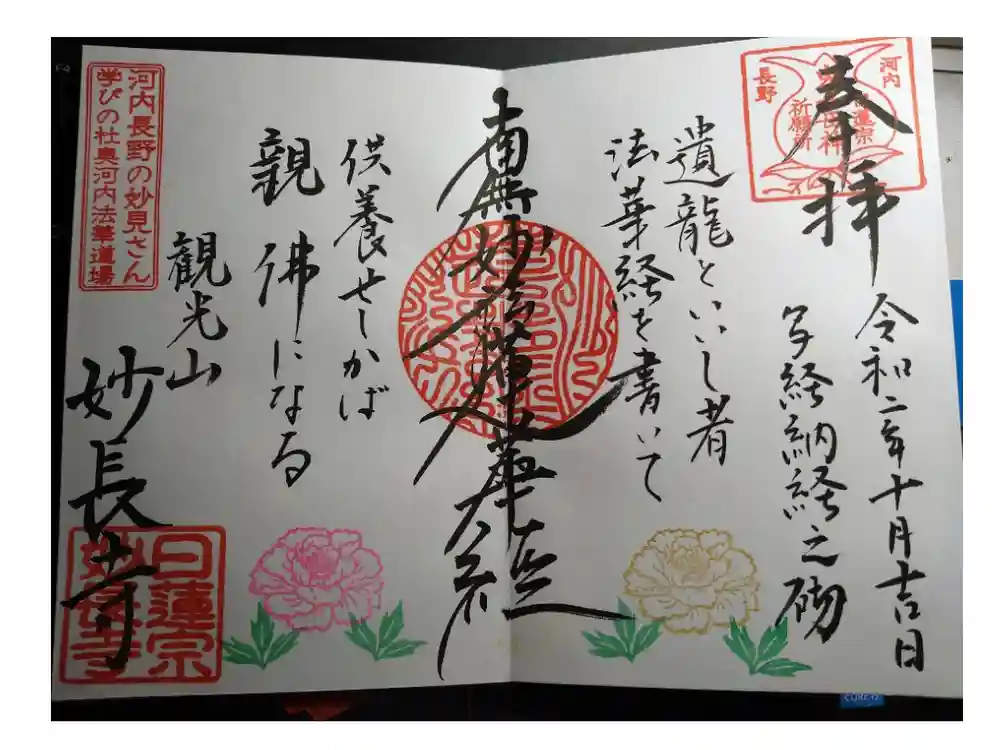 奉拝
河内
長野
祈願所
令和二年十月吉日
写経納経之砌
遺龍といいし者
法華経を書いて
南無妙法蓮華経
供養せしかば
親佛になる
観光山
妙長寺
河内長野の妙見さん
学びの社奥河内法華道場
日蓮宗
妙長寺